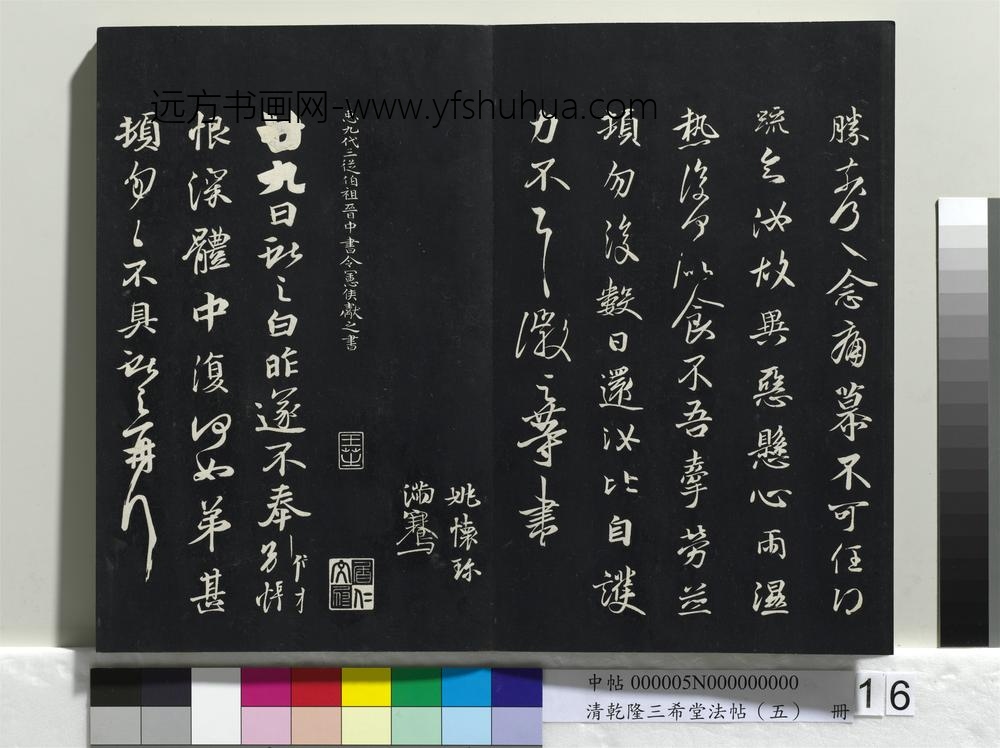 远方书画网-www.yfshuhua.com
念痛慕不可任
疏 汝故異惡懸心雨濕
熱 食不吾牽勞並
頓勿 數日還汝比自護
力不 徽之等書
姚懷珍
滿騫
九代三從伯祖晉中書令憲侯獻之書
廿九日獻之白昨遂不奉別悵
恨深體中復何如弟甚
頓勿勿不具獻之再
中帖 000005N000000000
清乾隆三希堂法帖(五) 冊
16